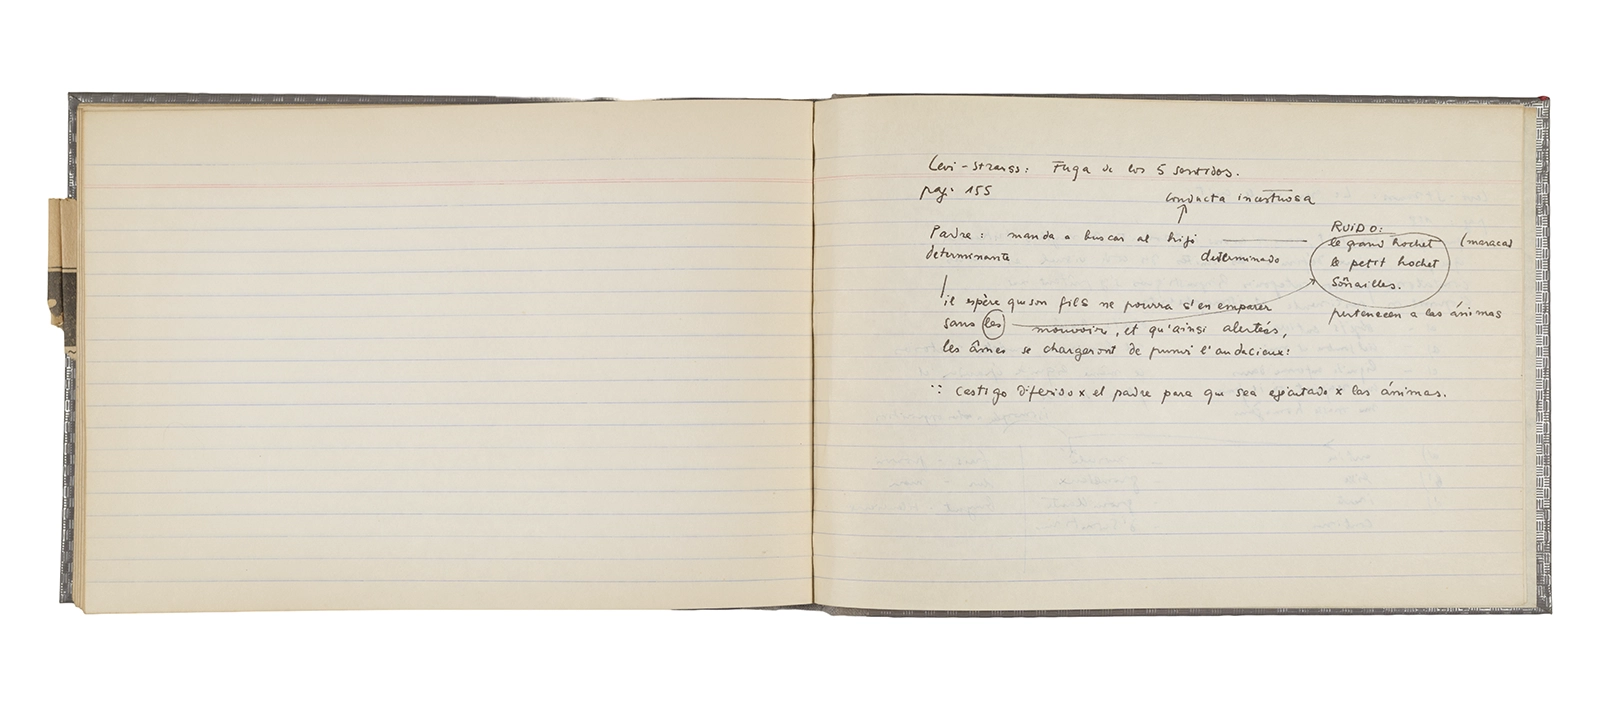 Levi-Strauss: Fuga de los 5 sentidos.
pag. 155
conducta incestuosa
RUIDO:
Padre: manda a buscar al hijo
le grand hochet (maracas
determinante determinado
le petit hochet
sonnailles.
il espère que son fils ne pourra s'en emparer
pertenecen a las ánimas
sans les mouvoir, et qu'ainsi alertées,
les âmes se chargeront de punir l'audacieux:
∵ castigo diferido x el padre para que sea ejecutado x las ánimas.